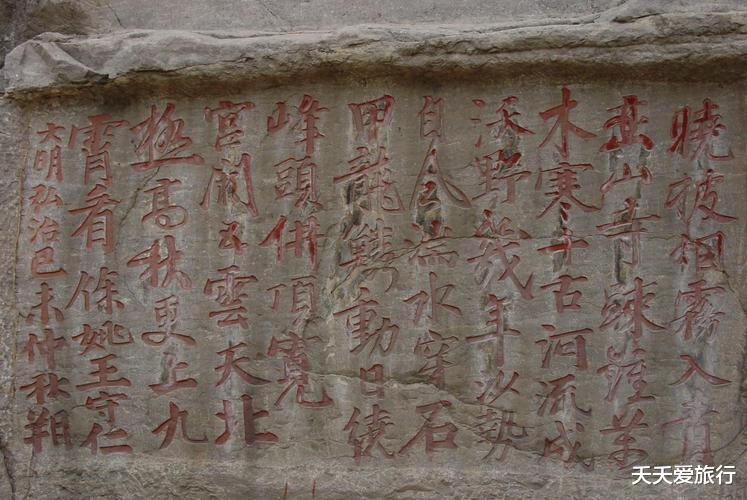 曉披烟霧入青
巒山寺踈鐘萬
木寒千古河流成
沃野幾年沙勢
自風湍水穿石
甲龍鱗動日繞
峰頭佛頂寬
宮闕五雲天北
極高秋更上九
霄看 餘姚王守仁
大明弘治己未仲秋朔
天天爱旅行